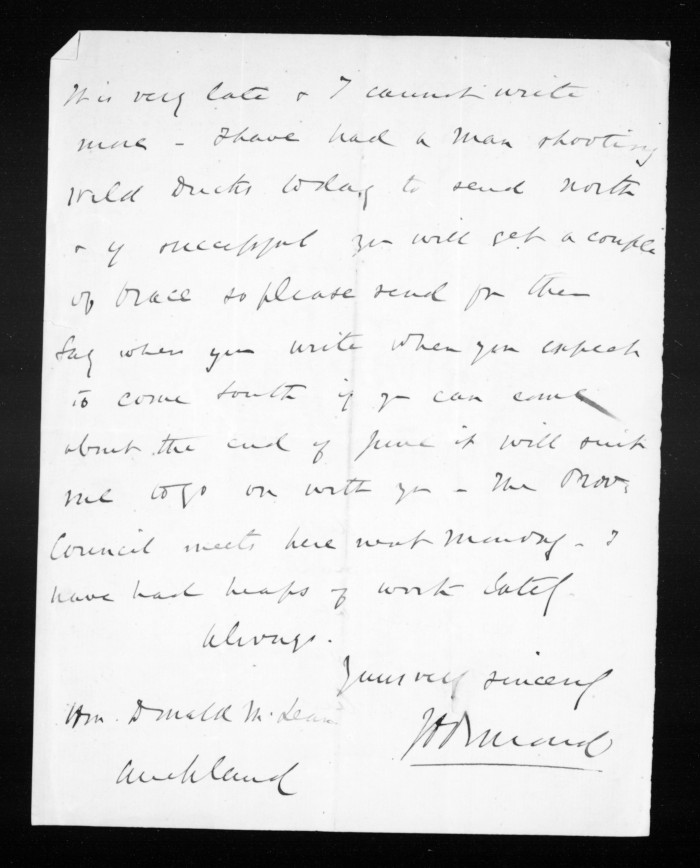 It is very late & I cannot write
more - I have had a man shooting
Wild Ducks today to send north
& if successful you will get a couple
of brace so please send for them
Say when you write when you expect
to come South if you can come
about the end of June it will suit
me to go on with you - The Prov.
Council meets here next Monday - I
have had heaps of work lately.
Always.
Yours very sincerely
JD Ormond
Hon. Donald McLean
Auckland